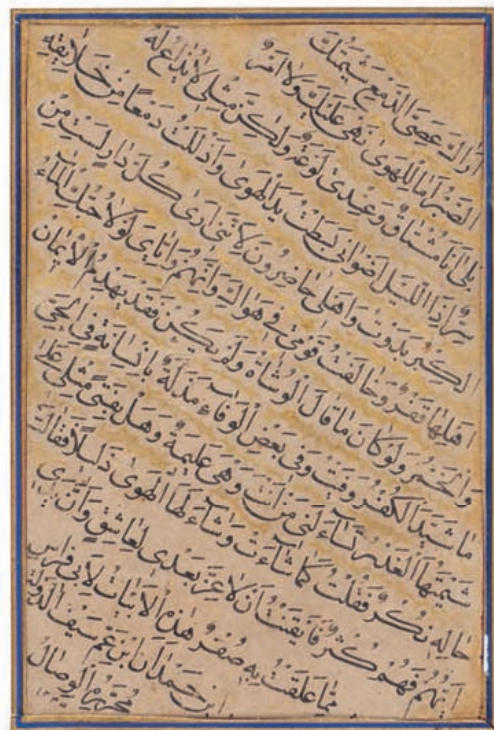 اَرَاكَ عَصِىَّ الدَّمْعِ شِيْمَتُكَ
الصَّبْرُ اَمَا لِلْهَوٰى نَهْىٌ عَلَيْكَ وَلَا اَمْرُ
بَلٰى اَنَا مُشْتَاقٌ وَعِنْدِى لَوْعَةٌ وَلٰكِنَّ مِثْلِى لَا يُذَاعُ لَهُ
سِرٌّ اِذَا اللَّيْلُ اَضْوَانِى بَسَطْتُ يَدَ الْهَوٰى وَاَذْلَلْتُ دَمْعًا مِنْ خَلَايِقِهِ
الْكِبْرُ بَدَوْتُ وَاَهْلِى حَاضِرُوْنَ لِاَنَّنِى اَرٰى كُلَّ دَارٍ لَسْتِ مِنْ
اَهْلِهَا قَفْرُ وَخَالَفْتُ قَوْمِى فِى هَوَاكِ وَاِنَّهُمْ وَاِيَّاىَ لَوْلَا حُبُّكِ الْمَاءُ
وَالْخَمْرُ وَلَوْ كَانَ مَا قَالَ الْوُشَاةُ وَلَمْ يَكُنْ فَقَدْ يَهْدِمُ الْاِيْمَانُ
مَا شَيَّدَ الْكُفْرُ وَفَيْتُ وَفِى بَعْضِ الْوَفَاءِ مَذَلَّةٌ بِاِنْسَانَةٍ فِى الْحَىِّ
شِيْمَتُهَا الْغَدْرُ تُسَاءِلُنِى مَنْ اَنْتَ وَهْىَ عَلِيْمَةٌ وَهَلْ بِفَتًى مِثْلِى عَلٰى
حَالِهِ نُكْرُ فَقُلْتُ كَمَا شَاءَتْ وَشَاءَ لَهَا الْهَوٰى ذَلِيْلًا فَقَالَتْ
اَيُّهُمْ فَهُمْ كُثْرُ فَاَيْقَنْتُ اَنْ لَا عِزَّ بَعْدِى لِعَاشِقٍ وَاَنَّ يَدِى
مِمَّا عَلِقْتُ بِهِ صُفْرُ هٰذِهِ الْاَبْيَاتُ لِاَبِى فِرَاسٍ
ابْنِ حَمْدَانَ ابْنِ عَمِّ سَيْفِ الدَّوْلَةِ